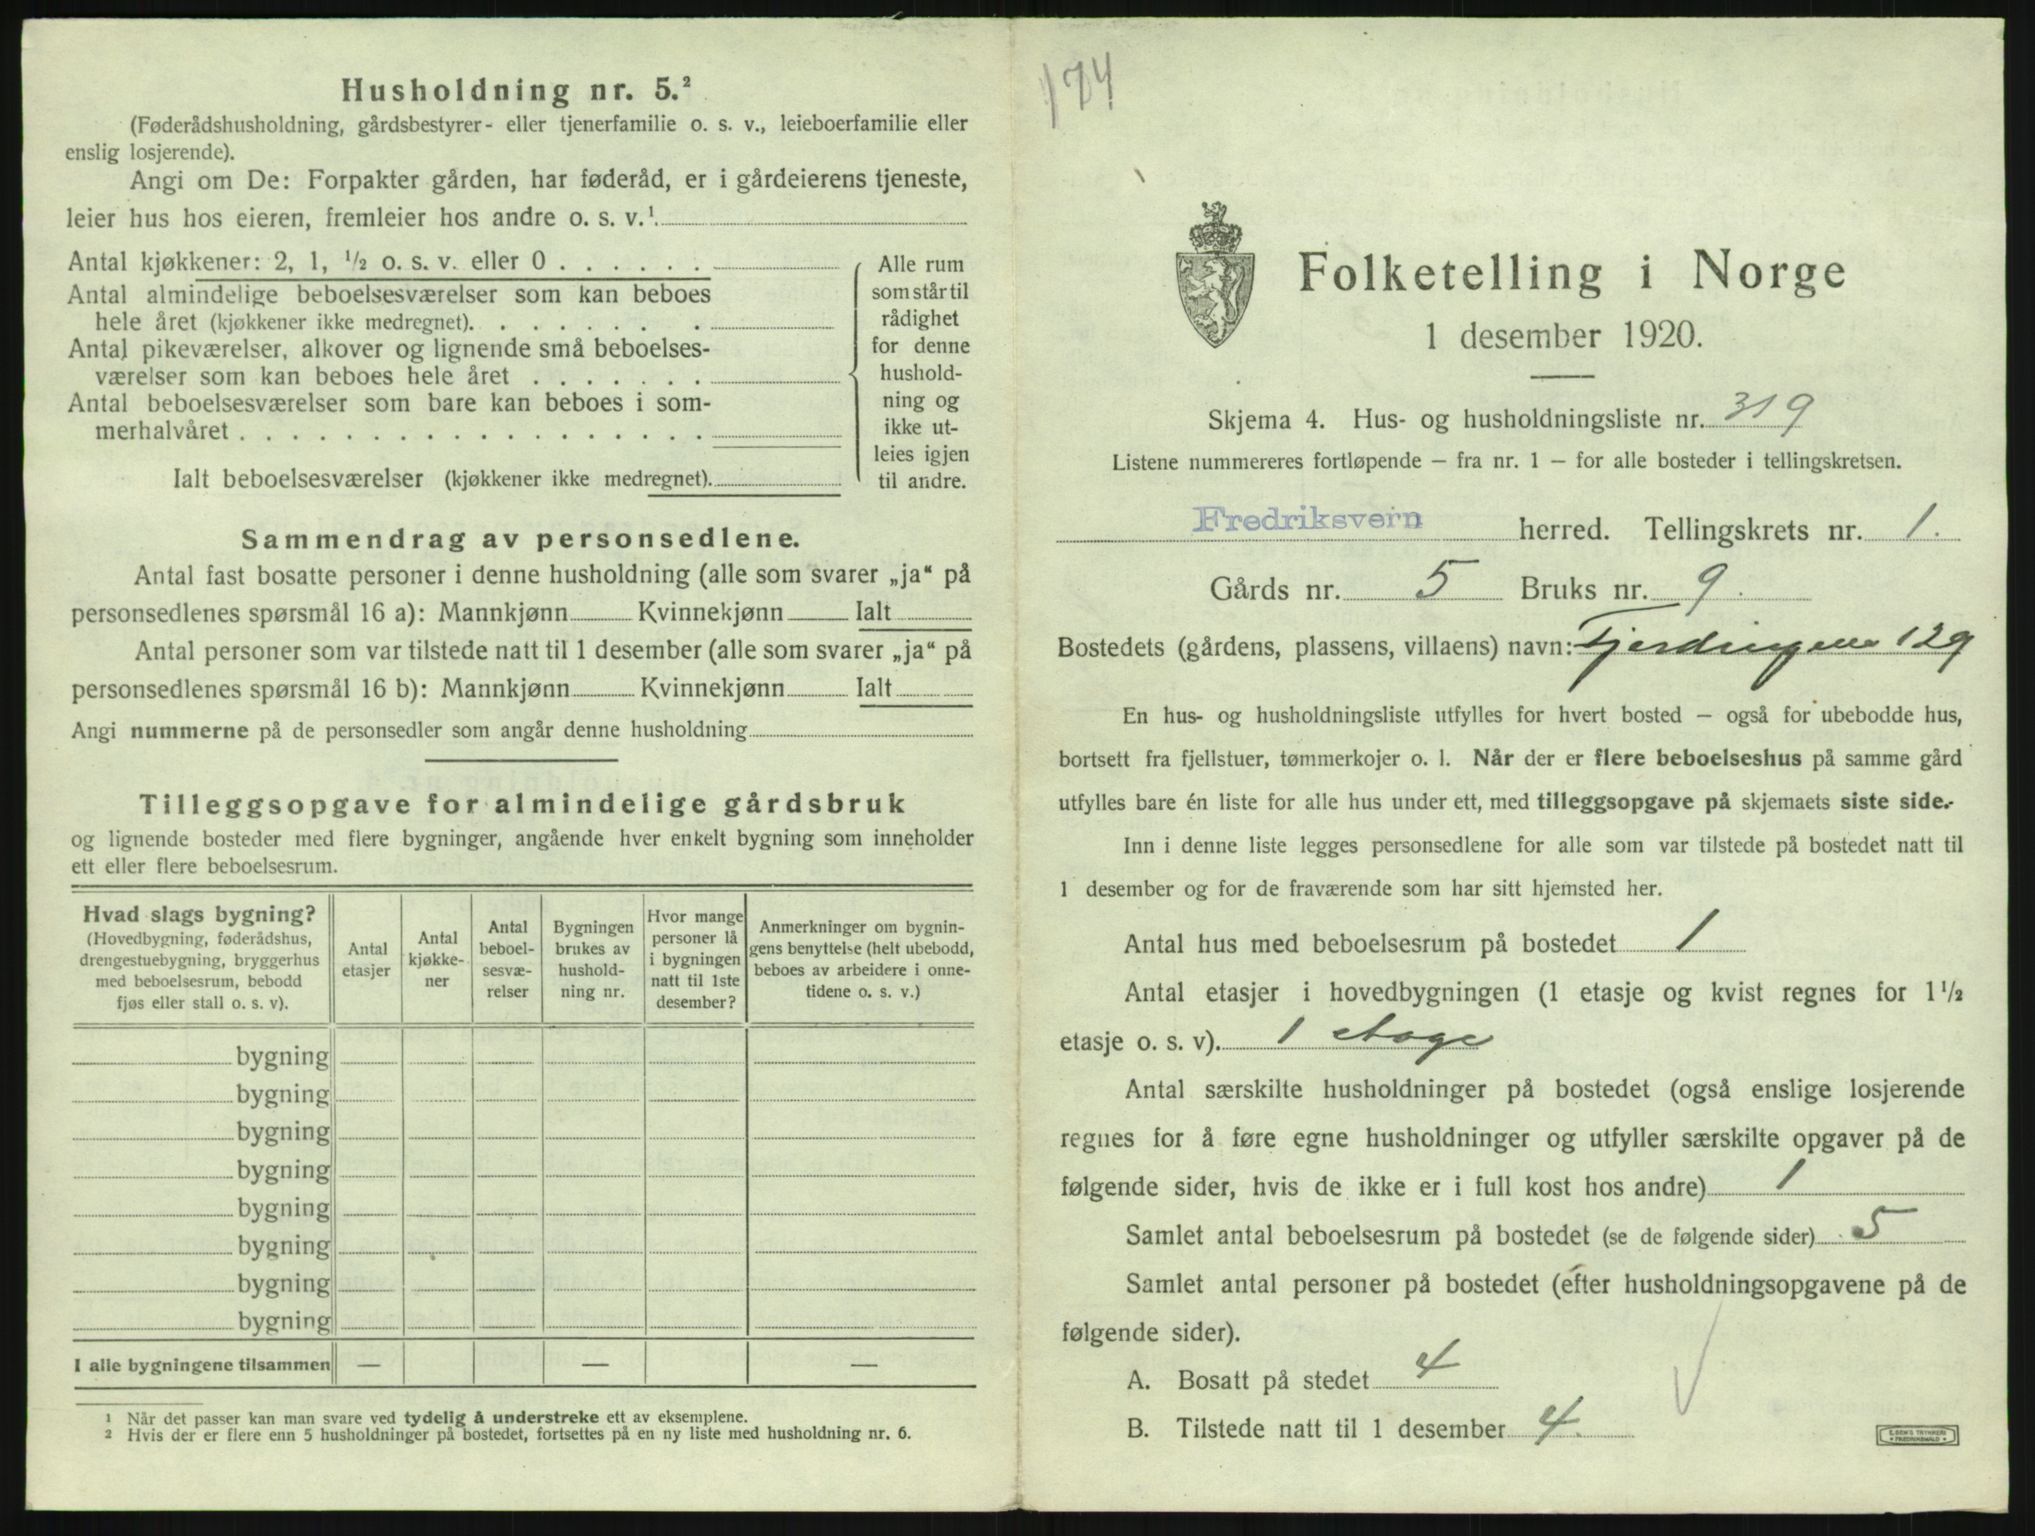 Husholdning nr. 5.²
(Føderådshusholdning, gårdsbestyrer- eller tjenerfamilie o. s. v., leieboerfamilie eller
enslig losjerende).
Angi om De: Forpakter gården, har føderåd, er i gårdeierens tjeneste,
leier hus hos eieren, fremleier hos andre o. s. v.¹
Antal kjøkkener: 2, 1, ½ o. s. v. eller 0 . . . . . .
Antal almindelige beboelsesværelser som kan beboes
hele året (kjøkkener ikke medregnet). . . . . . . .
Antal pikeværelser, alkover og lignende små beboelses-
værelser som kan beboes hele året . . . . . . .
Antal beboelsesværelser som bare kan beboes i som-
merhalvåret . . . . . . . . . . . . . . . . . .
Ialt beboelsesværelser (kjøkkener ikke medregnet).
Alle rum
som står til
rådighet
for denne
hushold-
ning og
ikke ut-
leies igjen
til andre.
Sammendrag av personsedlene.
Antal fast bosatte personer i denne husholdning (alle som svarer „ja“ på
personsedlenes spørsmål 16 a): Mannkjønn Kvinnekjønn Ialt
Antal personer som var tilstede natt til 1 desember (alle som svarer „ja“ på
personsedlenes spørsmål 16 b): Mannkjønn Kvinnekjønn Ialt
Angi nummerne på de personsedler som angår denne husholdning
Tilleggsopgave for almindelige gårdsbruk
og lignende bosteder med flere bygninger, angående hver enkelt bygning som inneholder
ett eller flere beboelsesrum.
Hvad slags bygning?
(Hovedbygning, føderådshus,
drengestuebygning, bryggerhus
med beboelsesrum, bebodd
fjøs eller stall o. s. v).
Antal
etasjer
Antal
kjøkke-
ner
Antal
beboel-
sesvæ-
relser
Bygningen
brukes av
hushold-
ning nr.
Hvor mange
personer lå
i bygningen
natt til 1ste
desember?
Anmerkninger om bygnin-
gens benyttelse (helt ubebodd,
beboes av arbeidere i onne-
tidene o. s. v.)
bygning
bygning
bygning
bygning
bygning
bygning
bygning
bygning
I alle bygningene tilsammen — — —
¹ Når det passer kan man svare ved tydelig å understreke ett av eksemplene.
² Hvis der er flere enn 5 husholdninger på bostedet, fortsettes på en ny liste med husholdning nr. 6.
174
Folketelling i Norge
1 desember 1920.
Skjema 4. Hus- og husholdningsliste nr. 319
Listene nummereres fortløpende — fra nr. 1 — for alle bosteder i tellingskretsen.
Fredriksvern herred. Tellingskrets nr. 1.
Gårds nr. 5 Bruks nr. 9.
Bostedets (gårdens, plassens, villaens) navn: Fjerdingene 129
En hus- og husholdningsliste utfylles for hvert bosted — også for ubebodde hus,
bortsett fra fjellstuer, tømmerkojer o. l. Når der er flere beboelseshus på samme gård
utfylles bare én liste for alle hus under ett, med tilleggsopgave på skjemaets siste side.
Inn i denne liste legges personsedlene for alle som var tilstede på bostedet natt til
1 desember og for de fraværende som har sitt hjemsted her.
Antal hus med beboelsesrum på bostedet 1
Antal etasjer i hovedbygningen (1 etasje og kvist regnes for 1½
etasje o. s. v). 1 etage
Antal særskilte husholdninger på bostedet (også enslige losjerende
regnes for å føre egne husholdninger og utfyller særskilte opgaver på de
følgende sider, hvis de ikke er i full kost hos andre) 1
Samlet antal beboelsesrum på bostedet (se de følgende sider) 5
Samlet antal personer på bostedet (efter husholdningsopgavene på de
følgende sider).
A. Bosatt på stedet 4
B. Tilstede natt til 1 desember 4.